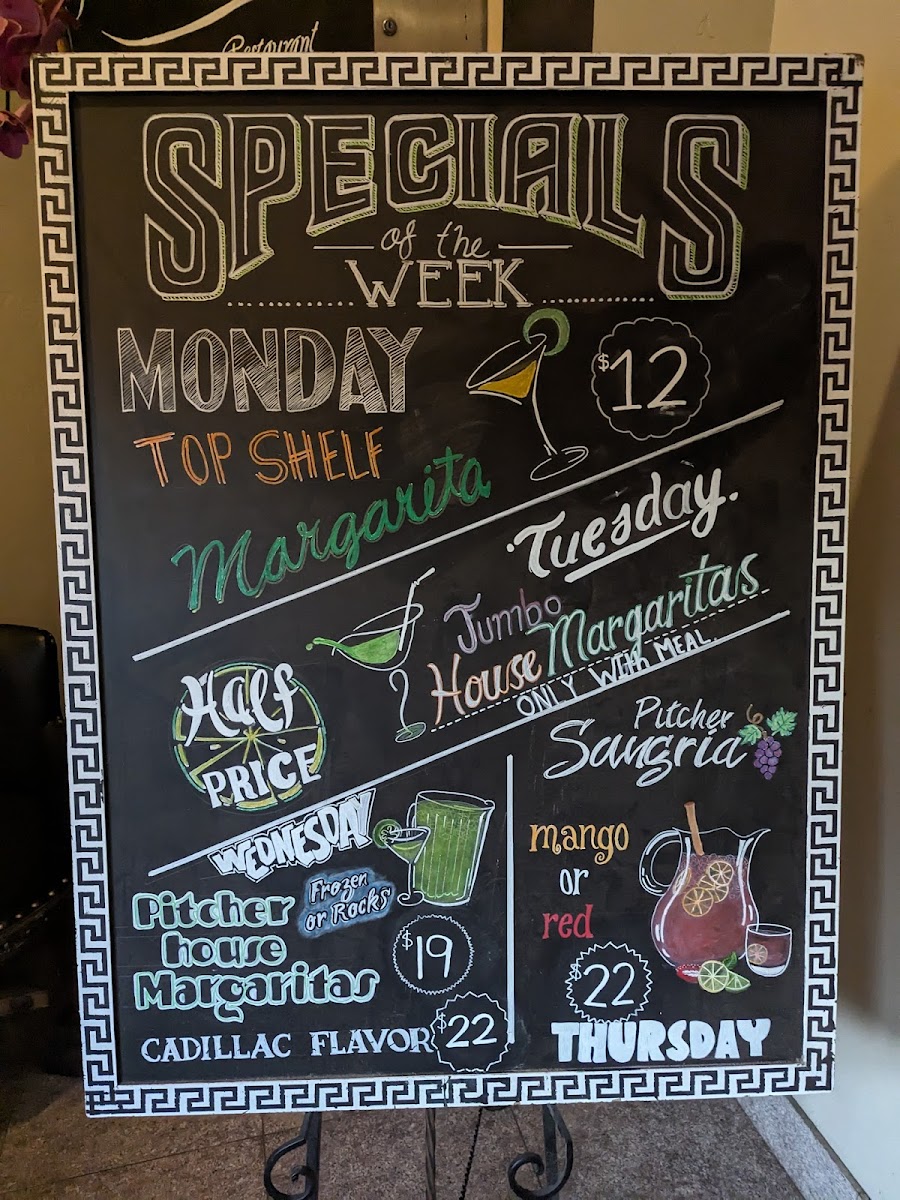 Restaurant
SPECIALS
of the
WEEK
MONDAY
$12
TOP SHELF
Margarita
Tuesday.
Jumbo
House Margaritas
ONLY WITH MEAL.
Half
PRICE
WEDNESDAY
Frozen
or Rocks
Pitcher
house
Margaritas
$19
CADILLAC FLAVOR $22
Pitcher
Sangria
mango
or
red
$22
THURSDAY